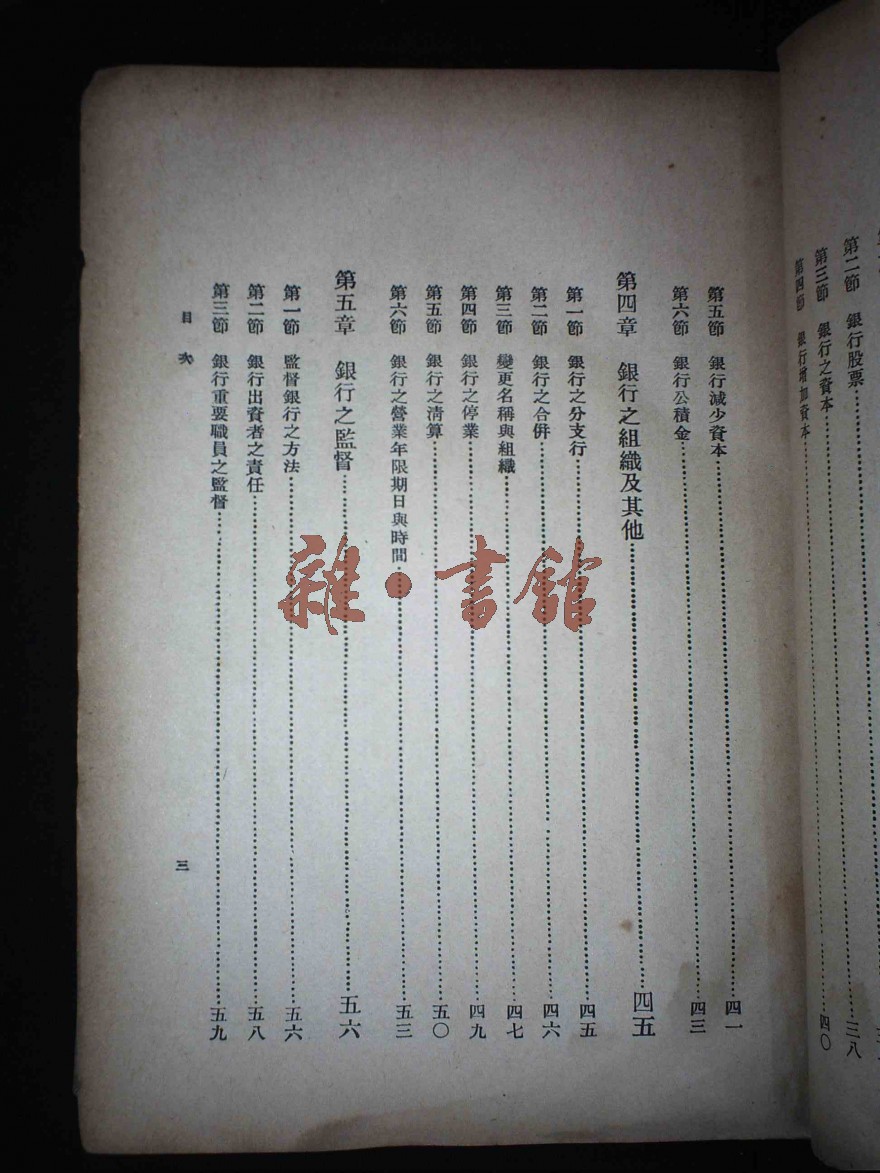 第二節　銀行股票……三八
第三節　銀行之資本
第四節　銀行增加資本……四〇
第五節　銀行減少資本……四一
第六節　銀行公積金……四三
第四章　銀行之組織及其他……四五
第一節　銀行之分支行……四五
第二節　銀行之合併……四六
第三節　變更名稱與組織……四七
第四節　銀行之停業……四九
第五節　銀行之清算……五〇
第六節　銀行之營業年限期日與時間……五三
第五章　銀行之監督……五六
第一節　監督銀行之方法……五六
第二節　銀行出資者之責任……五八
第三節　銀行重要職員之監督……五九
目次
三
雜·書館